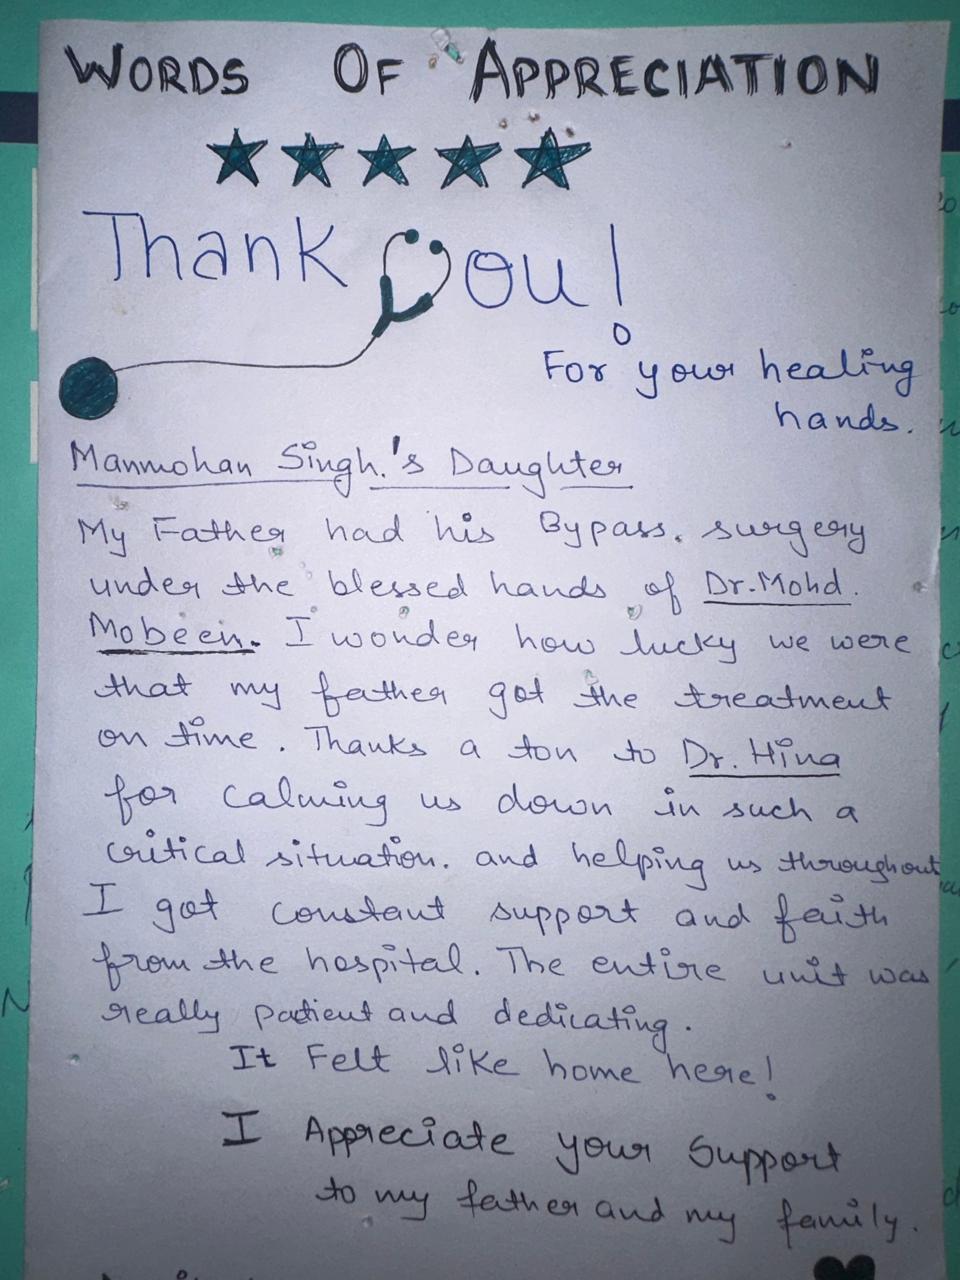 WORDS OF APPRECIATION
Thank You!
For your healing
hands.
Manmohan Singh.'s Daughter
My Father had his Bypass. surgery
under the blessed hands of Dr.Mohd.
Mobeen. I wonder how lucky we were
that my father got the treatment
on time. Thanks a ton to Dr. Hina
for calming us down in such a
critical situation. and helping us throughout
I got constant support and faith
from the hospital. The entire unit was
really patient and dedicating.
It Felt like home here!
I Appreciate your Support
to my father and my family.